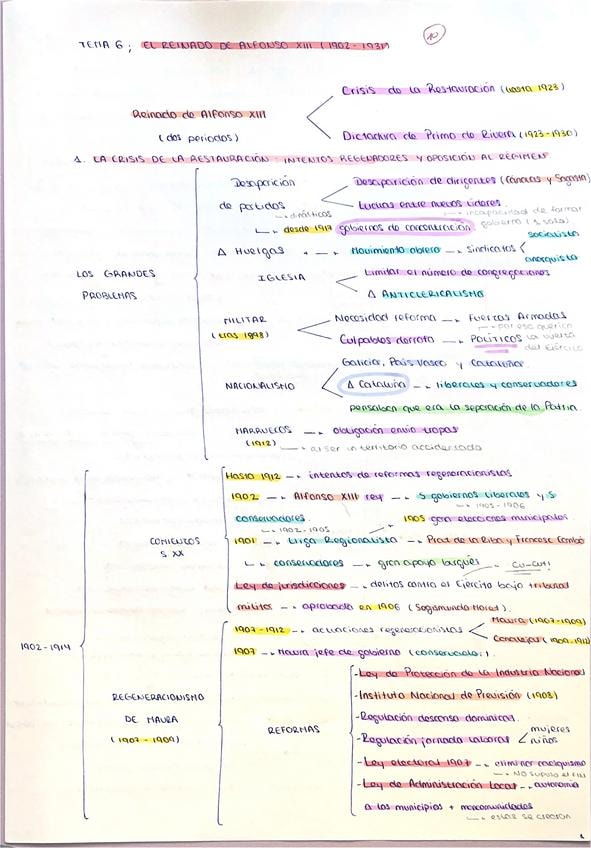 10
TEMA 6: EL REINADO DE ALFONSO XIII (1902-1931)
Crisis de la Restauración (hasta 1923)
Reinado de Alfonso XIII
(dos periodos)
Dictadura de Primo de Rivera (1923-1930)
1. LA CRISIS DE LA RESTAURACIÓN: INTENTOS REGENADORES Y OPOSICIÓN AL RÉGIMEN
Desaparición
de partidos
dinásticos
Desaparición de dirigentes (Cánovas y Sagasta)
Luchas entre nuevos líderes
incapacidad de formar
gobierno (1 solo)
desde 1917 gobiernos de concentración
Δ Huelgas + → Movimiento obrero → sindicatos
socialista
anarquista
LOS GRANDES
PROBLEMAS
IGLESIA
Limitar el número de congregaciones
Δ ANTICLERICALISMO
MILITAR
(tras 1898)
Necesidad reforma → Fuerzas Armadas
por eso querían
la vuelta
del Ejército
Culpables derrota → POLÍTICOS
NACIONALISMO
Galicia, País Vasco y Cataluña
Δ Cataluña → liberales y conservadores
pensaban que era la separación de la Patria
MARRUECOS → obligación envío tropas
(1912) → al ser in territorio accidentado
1902-1914
COMIENZOS
S. XX
Hasta 1912 → intentos de reformas regeneracionistas
1902 → Alfonso XIII rey → 5 gobiernos liberales y 5
1905-1906
conservadores.
1902-1905
1905 gan elecciones municipales
1901 → Lliga Regionalista → Prat de la Riba y Francesc Cambó
conservadores → gran apoyo burgués → CU-CUT!
Ley de jurisdicciones → delitos contra el Ejército bajo tribunal
militar → aprobada en 1906 (Segismundo Moret).
REGENERACIONISMO
DE MAURA
(1907-1909)
1907-1912 → actuaciones regeneracionistas
Maura (1907-1909)
Canalejas (1909-1912)
1907 → Maura jefe de gobierno (conservador).
REFORMAS
- Ley de Protección de la Industria Nacional
- Instituto Nacional de Previsión (1908)
- Regulación descanso dominical.
- Regulación jornada laboral
mujeres
niños
- Ley electoral 1907 → eliminar caciquismo
NO supuso el fin
- Ley de Administración Local → autonomía
a los municipios + mancomunidades
estas se crearon
1